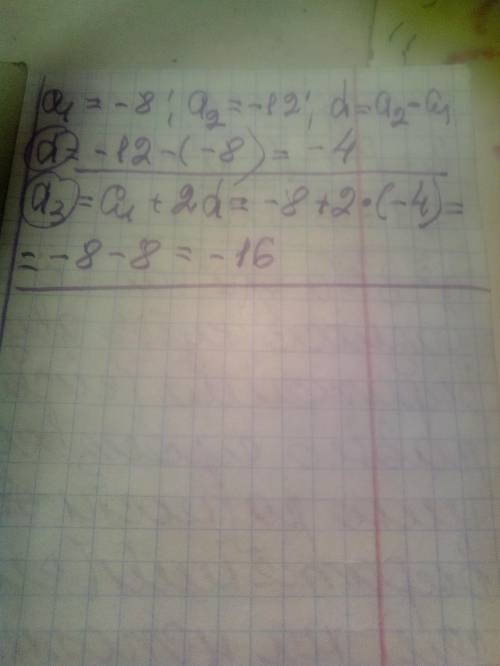 a₁ = -8; a₂ = -12; d = a₂ - a₁
d = -12 - (-8) = -4
a₃ = a₁ + 2d = -8 + 2 · (-4) =
= -8 - 8 = -16